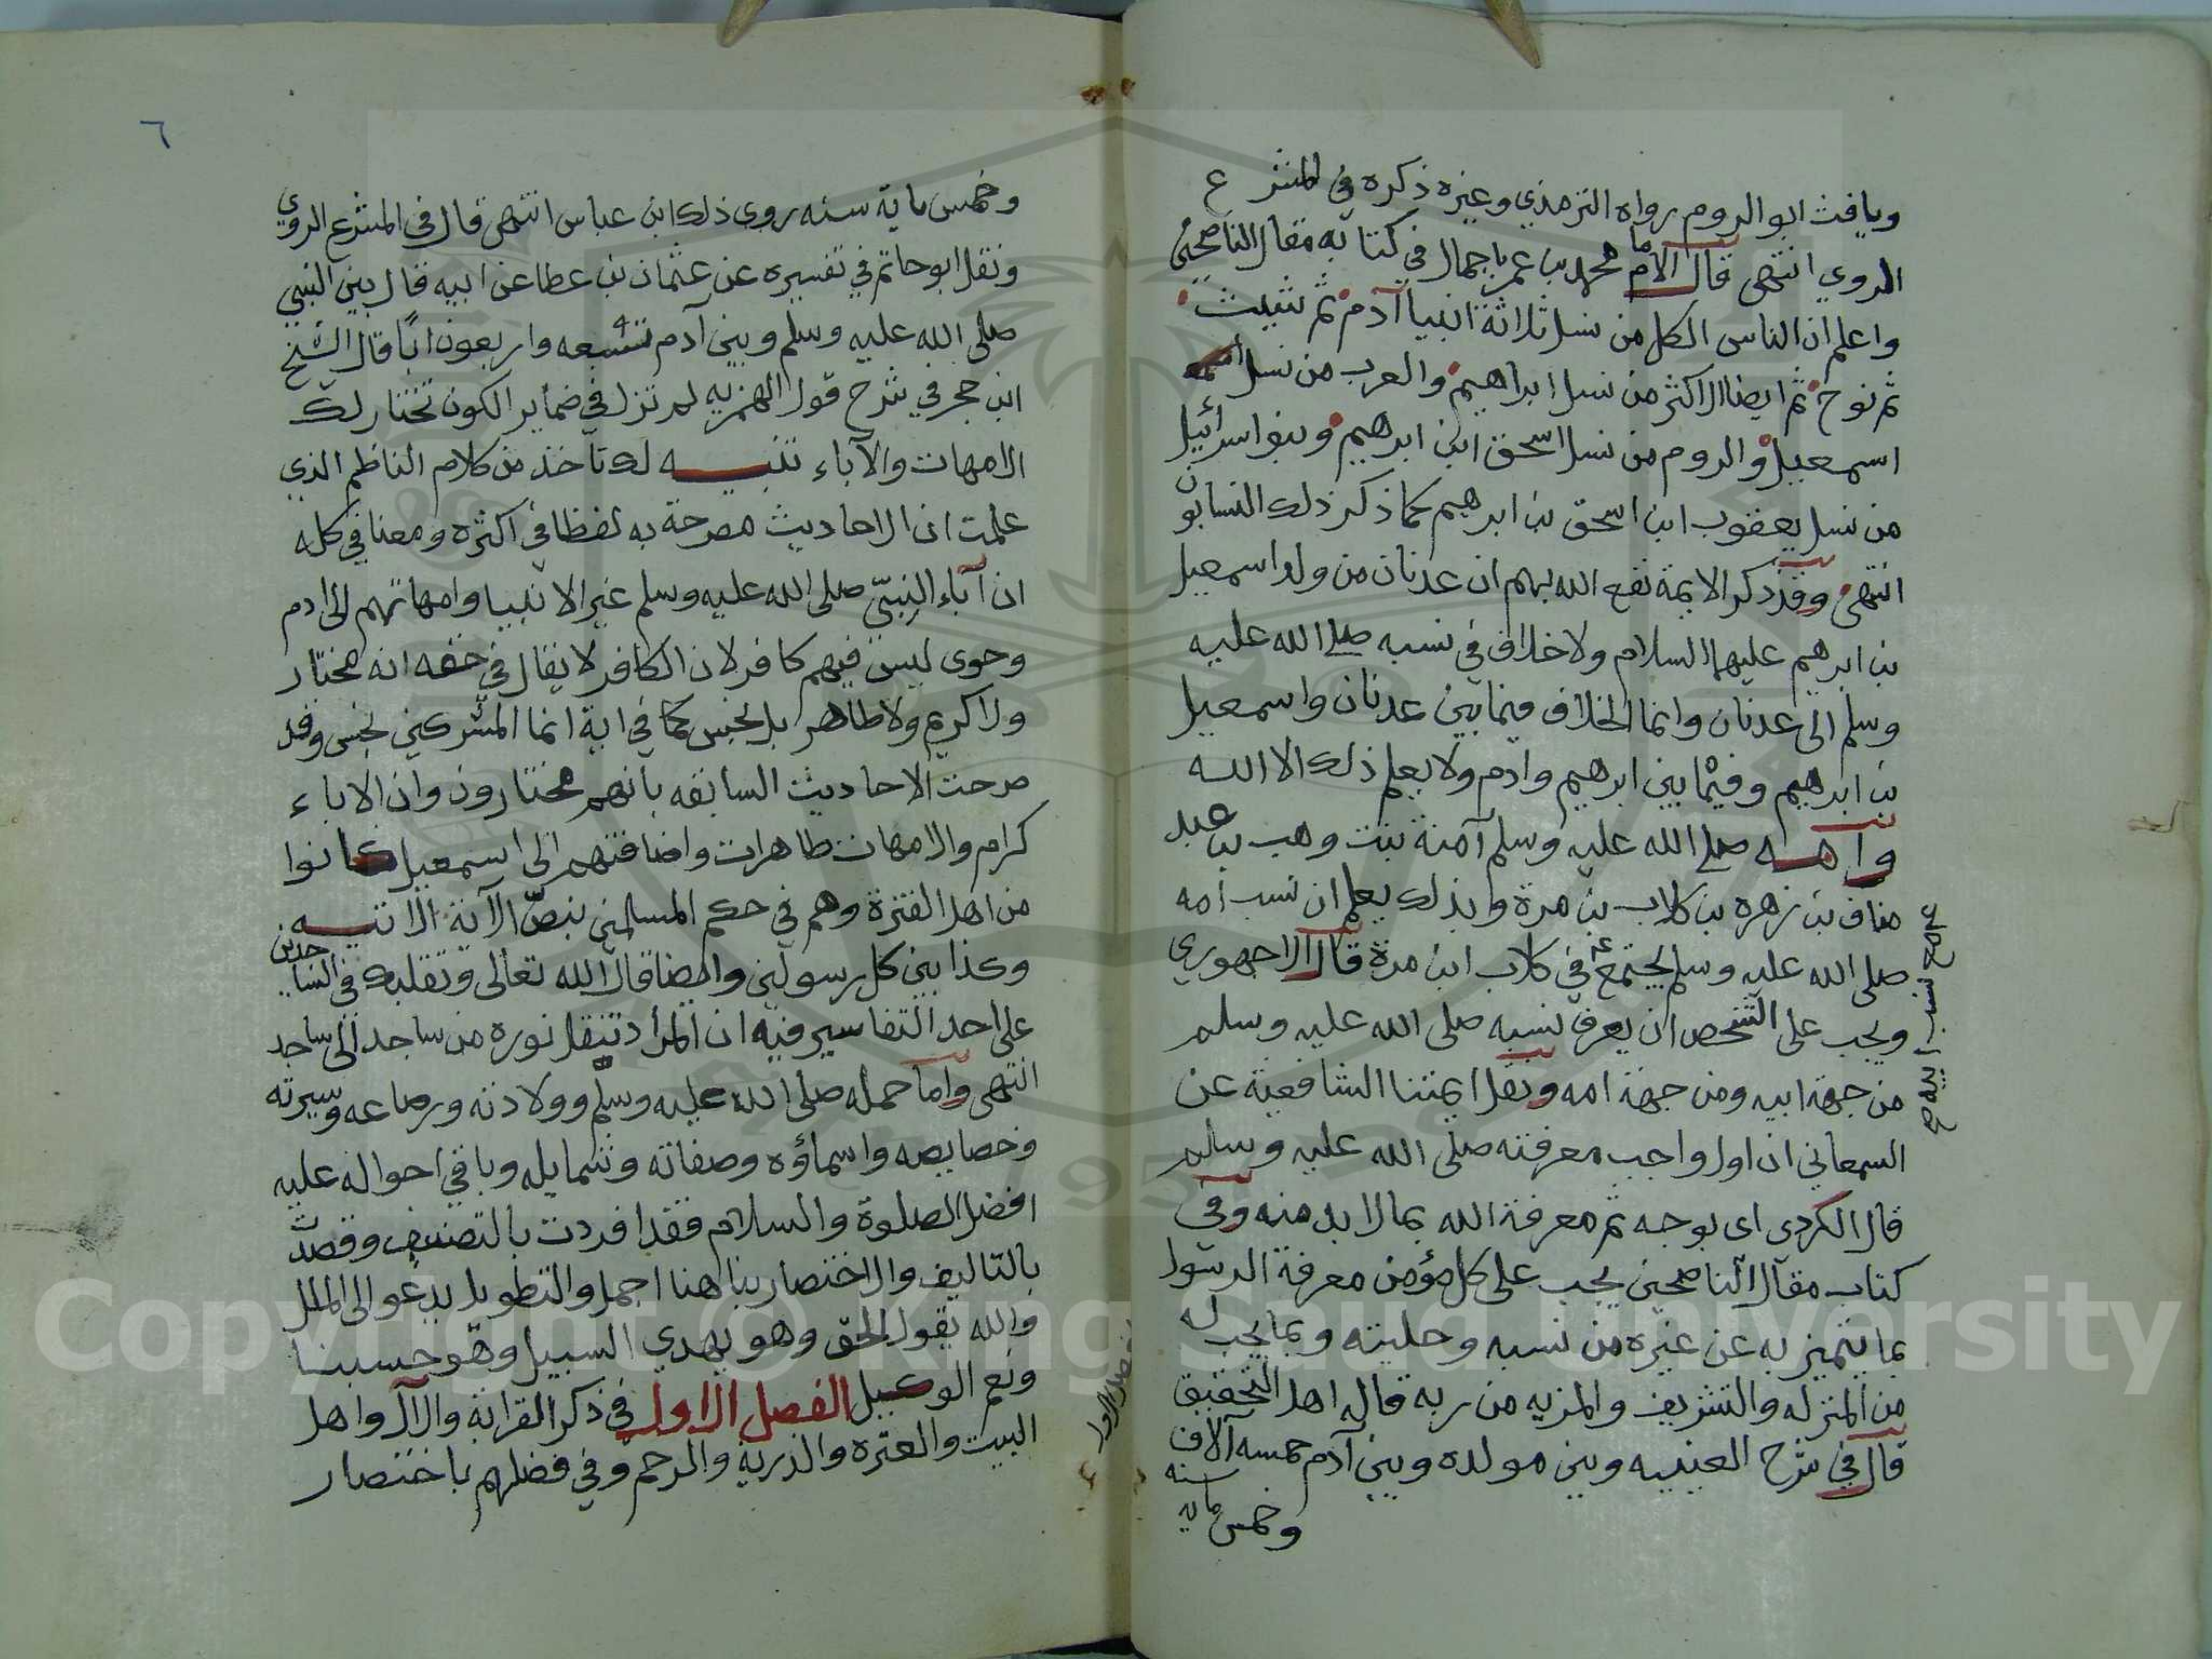 ويافث ابو الروم رواه الترمذي وغيره ذكره في المشرع
الروي انتهى قال الامام محمد بن عمر باجمال في كتابه مقال الناصحين
واعلم ان الناس الكل من نسل ثلاثة انبيا آدم ثم شيث
ثم نوح ثم ايضا الاكثر من نسل ابراهيم والعرب من نسل
اسمعيل والروم من نسل اسحق ابن ابرهيم وبنو اسرائيل
من نسل يعقوب ابن اسحق بن ابرهيم كما ذكر ذلك النسابون
انتهى وقد ذكر الايمة نفع الله بهم ان عدنان من ولد اسمعيل
بن ابرهيم عليهما السلام ولا خلاف في نسبه صلى الله عليه
وسلم الى عدنان وانما الخلاف فيما بين عدنان واسمعيل
بن ابرهيم وفيما بين ابرهيم وادم ولا يعلم ذلك الا الله
وامه صلى الله عليه وسلم آمنة بنت وهب بن عبد
مناف بن زهره بن كلاب بن مرة وبذلك يعلم ان نسب امه
صلى الله عليه وسلم يجتمع في كلاب ابن مرة قال الاجهوري
ويجب على الشخص ان يعرف نسبه صلى الله عليه وسلم
من جهة ابيه ومن جهة امه ونقل ايمتنا الشافعية عن
السمعاني ان اول واجب معرفته صلى الله عليه وسلم
قال الكردي اى بوجه ثم معرفة الله بما لا بد منه وفي
كتاب مقال الناصحين يجب على كل مؤمن معرفة الرسول
بما يتميز به عن غيره من نسبه وحليته وبما يجب له
من المنزله والتشريف والمزيه من ربه قاله اهل التحقيق
قال في شرح العينيه وبين مولده وبين آدم خمسه آلاف سنه
وخمس مايه
مع نسب ابيه
٦
وخمس ماية سنه روى ذلك ابن عباس انتهى قال في المشرع الروي
ونقل ابو حاتم في تفسيره عن عثمان بن عطا عن ابيه قال بين النبي
صلى الله عليه وسلم وبين آدم تسعه واربعون ابًا قال الشيخ
ابن حجر في شرح قول الهمزيه لم تزل في ضماير الكون تختار لك
الامهات والآباء تنبيه لك تاخذ من كلام الناظم الذي
علمت ان الاحاديث مصرحة به لفظا في اكثره ومعنا في كله
ان آباء النبيّ صلى الله عليه وسلم غير الانبيا وامهاتهم الى ادم
وحوى ليس فيهم كافر لان الكافر لا يقال في حقه انه مختار
ولا كريم ولا طاهر بل نجس كما في اية انما المشركين نجس وقد
صرحت الاحاديث السابقه بانهم مختارون وان الاباء
كرام والامهات طاهرات واضافتهم الى اسمعيل كانوا
من اهل الفترة وهم في حكم المسلمين بنصّ الآية الاتيه
وكذا بين كل رسولين وايضا قال الله تعالى وتقلبك في الساجدين
على احد التفاسير فيه ان المراد تنقل نوره من ساجد الى ساجد
انتهى واما حمله صلى الله عليه وسلم وولادته ورضاعه وسيرته
وخصايصه واسماؤه وصفاته وشمايله وباقي احواله عليه
افضل الصلوة والسلام فقد افردت بالتصنيف وقصدت
بالتاليف والاختصار بنا هنا اجمل والتطويل يدعو الى الملل
والله يقول الحق وهو يهدي السبيل وهو حسبنا
ونعم الوكيل الفصل الاول في ذكر القرابة والآل واهل
البيت والعتره والذرية والرحم وفي فضلهم باختصار
الفصل الاول
Copyright © King Saud University